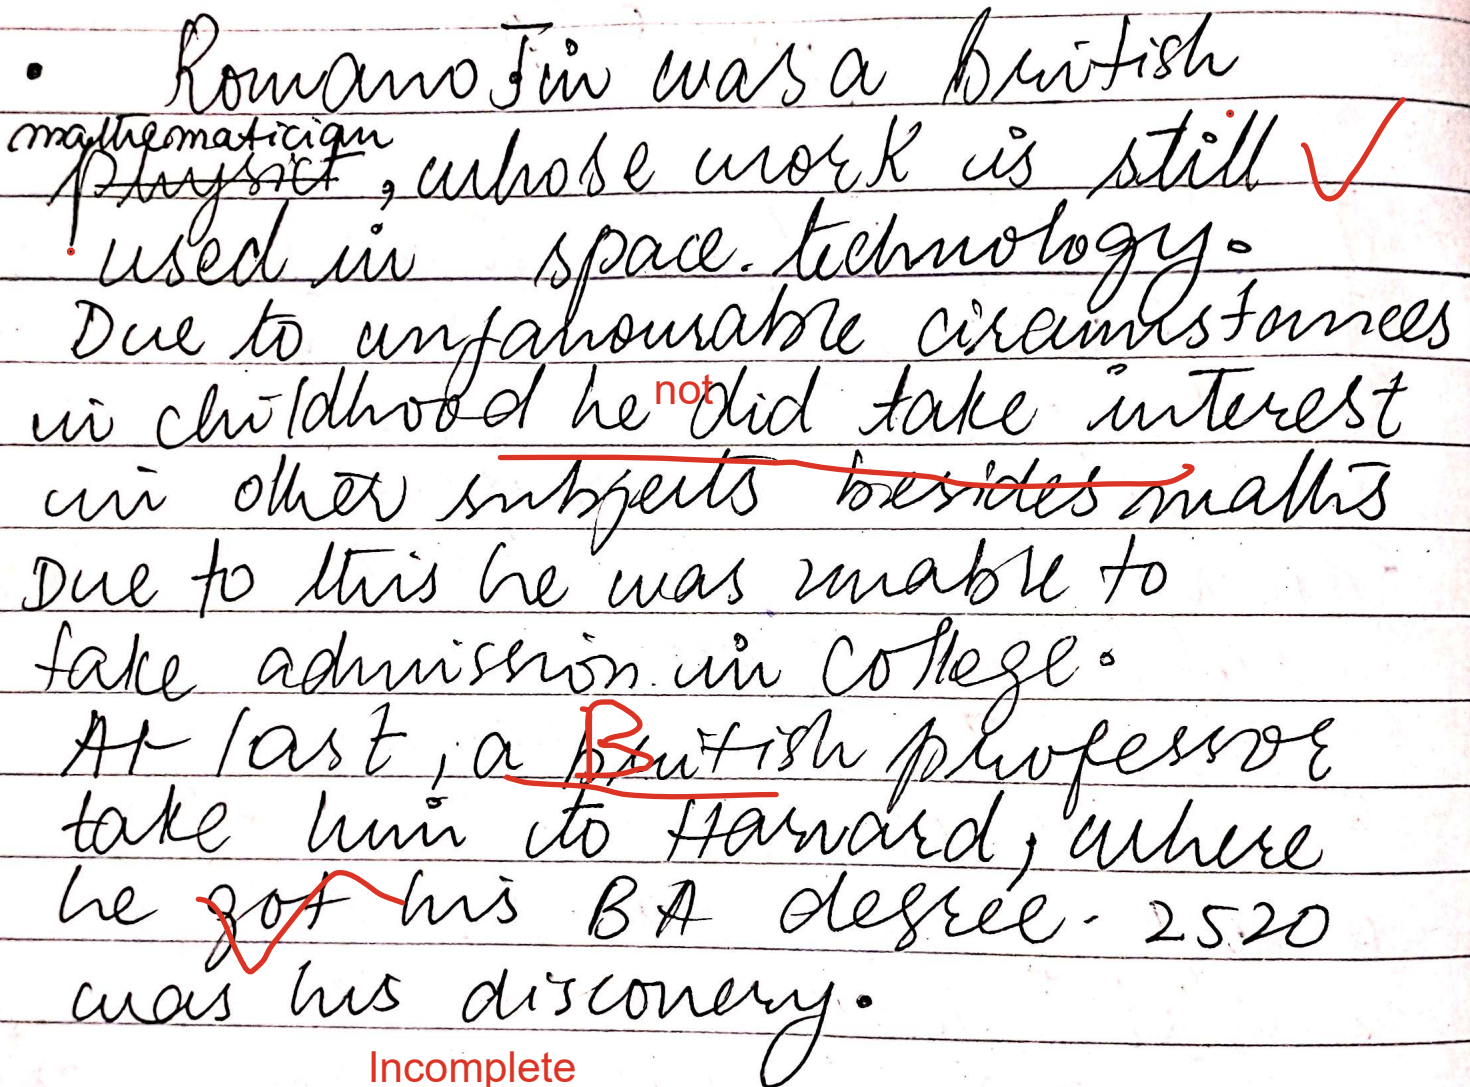 • Romano Jin was a British
mathematician
physict, whose work is still
used in space. technology.
Due to unfavourable circumstances
not
in childhood he did take interest
in other subjects besides maths
Due to this he was unable to
take admission in college.
At last, a British professor
take him to Harvard, where
he got his BA degree. 2520
was his discovery.
Incomplete